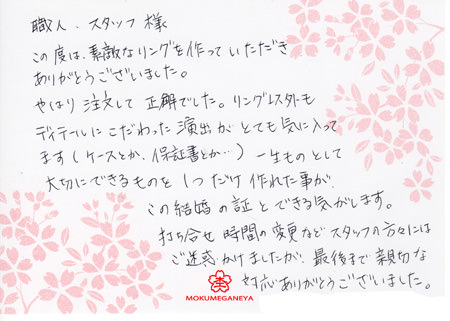 職人、スタッフ 様
この度は、素敵なリングを作っていただき
ありがとうございました。
やはり 注文して 正解でした。リング以外も
ディテールにこだわった演出が とても気に入って
ます(ケースとか、保証書とか…) 一生ものとして
大切にできるものを 1つだけ 作れた事が、
この結婚の証とできる気がします。
打ち合せ 時間の変更など スタッフの方々には
ご迷惑 かけましたが、最後まで 親切な
対応ありがとうございました。
MOKUMEGANEYA